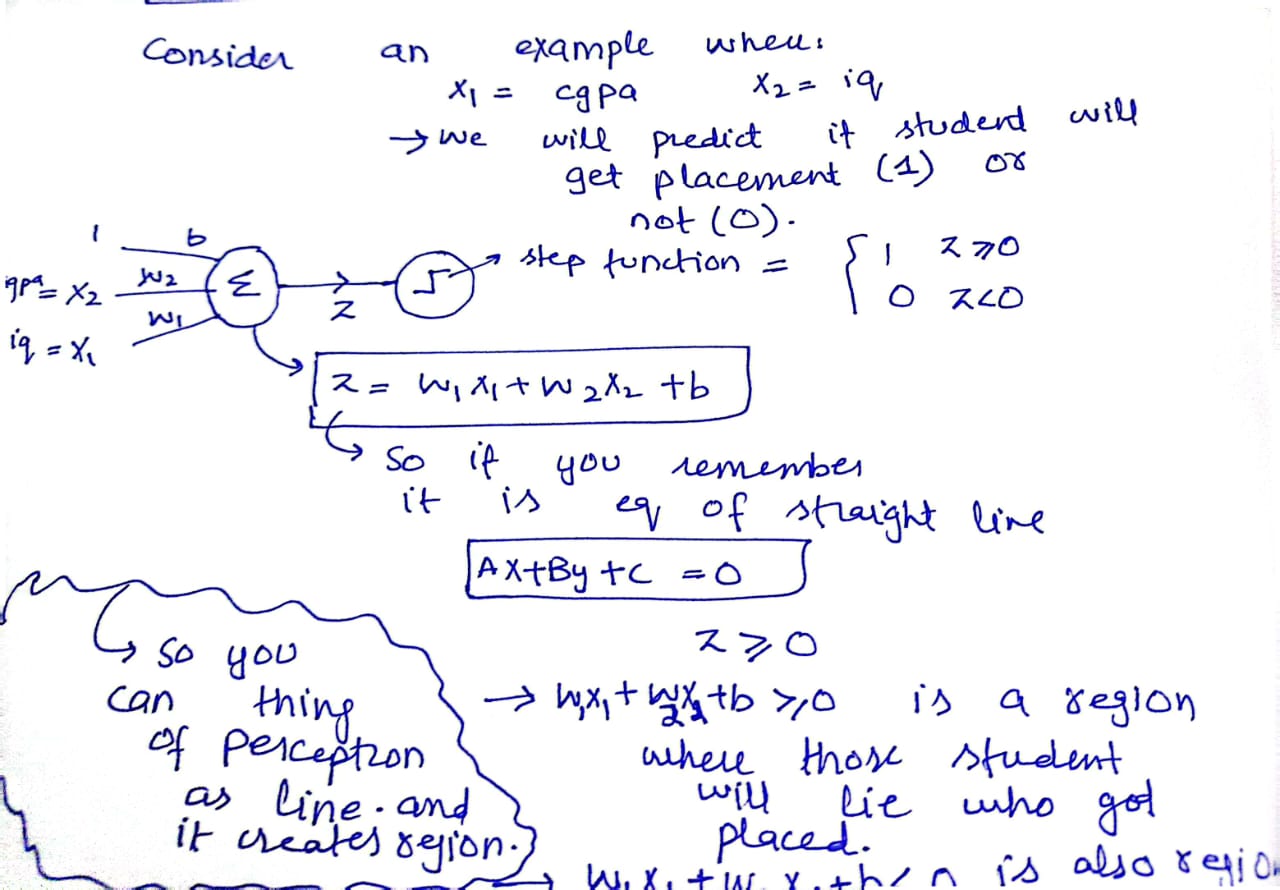 Consider an example when:
x1 = cgpa x2 = iq
→ we will predict if student will
get placement (1) or
not (0).
1 b
gpa = x2 w2 Σ z → step function = { 1 z ≥ 0
0 z < 0
iq = x1 w1
z = w1x1 + w2x2 + b
↳ so if you remember
it is eq of straight line
Ax + By + C = 0
↳ so you
can thing
of perceptron
as line. and
it creates region.
z ≥ 0
→ w1x1 + w2x2 + b ≥ 0 is a region
where those student
will lie who got
placed.
→ w1x1 + w2x2 + b < 0 is also region